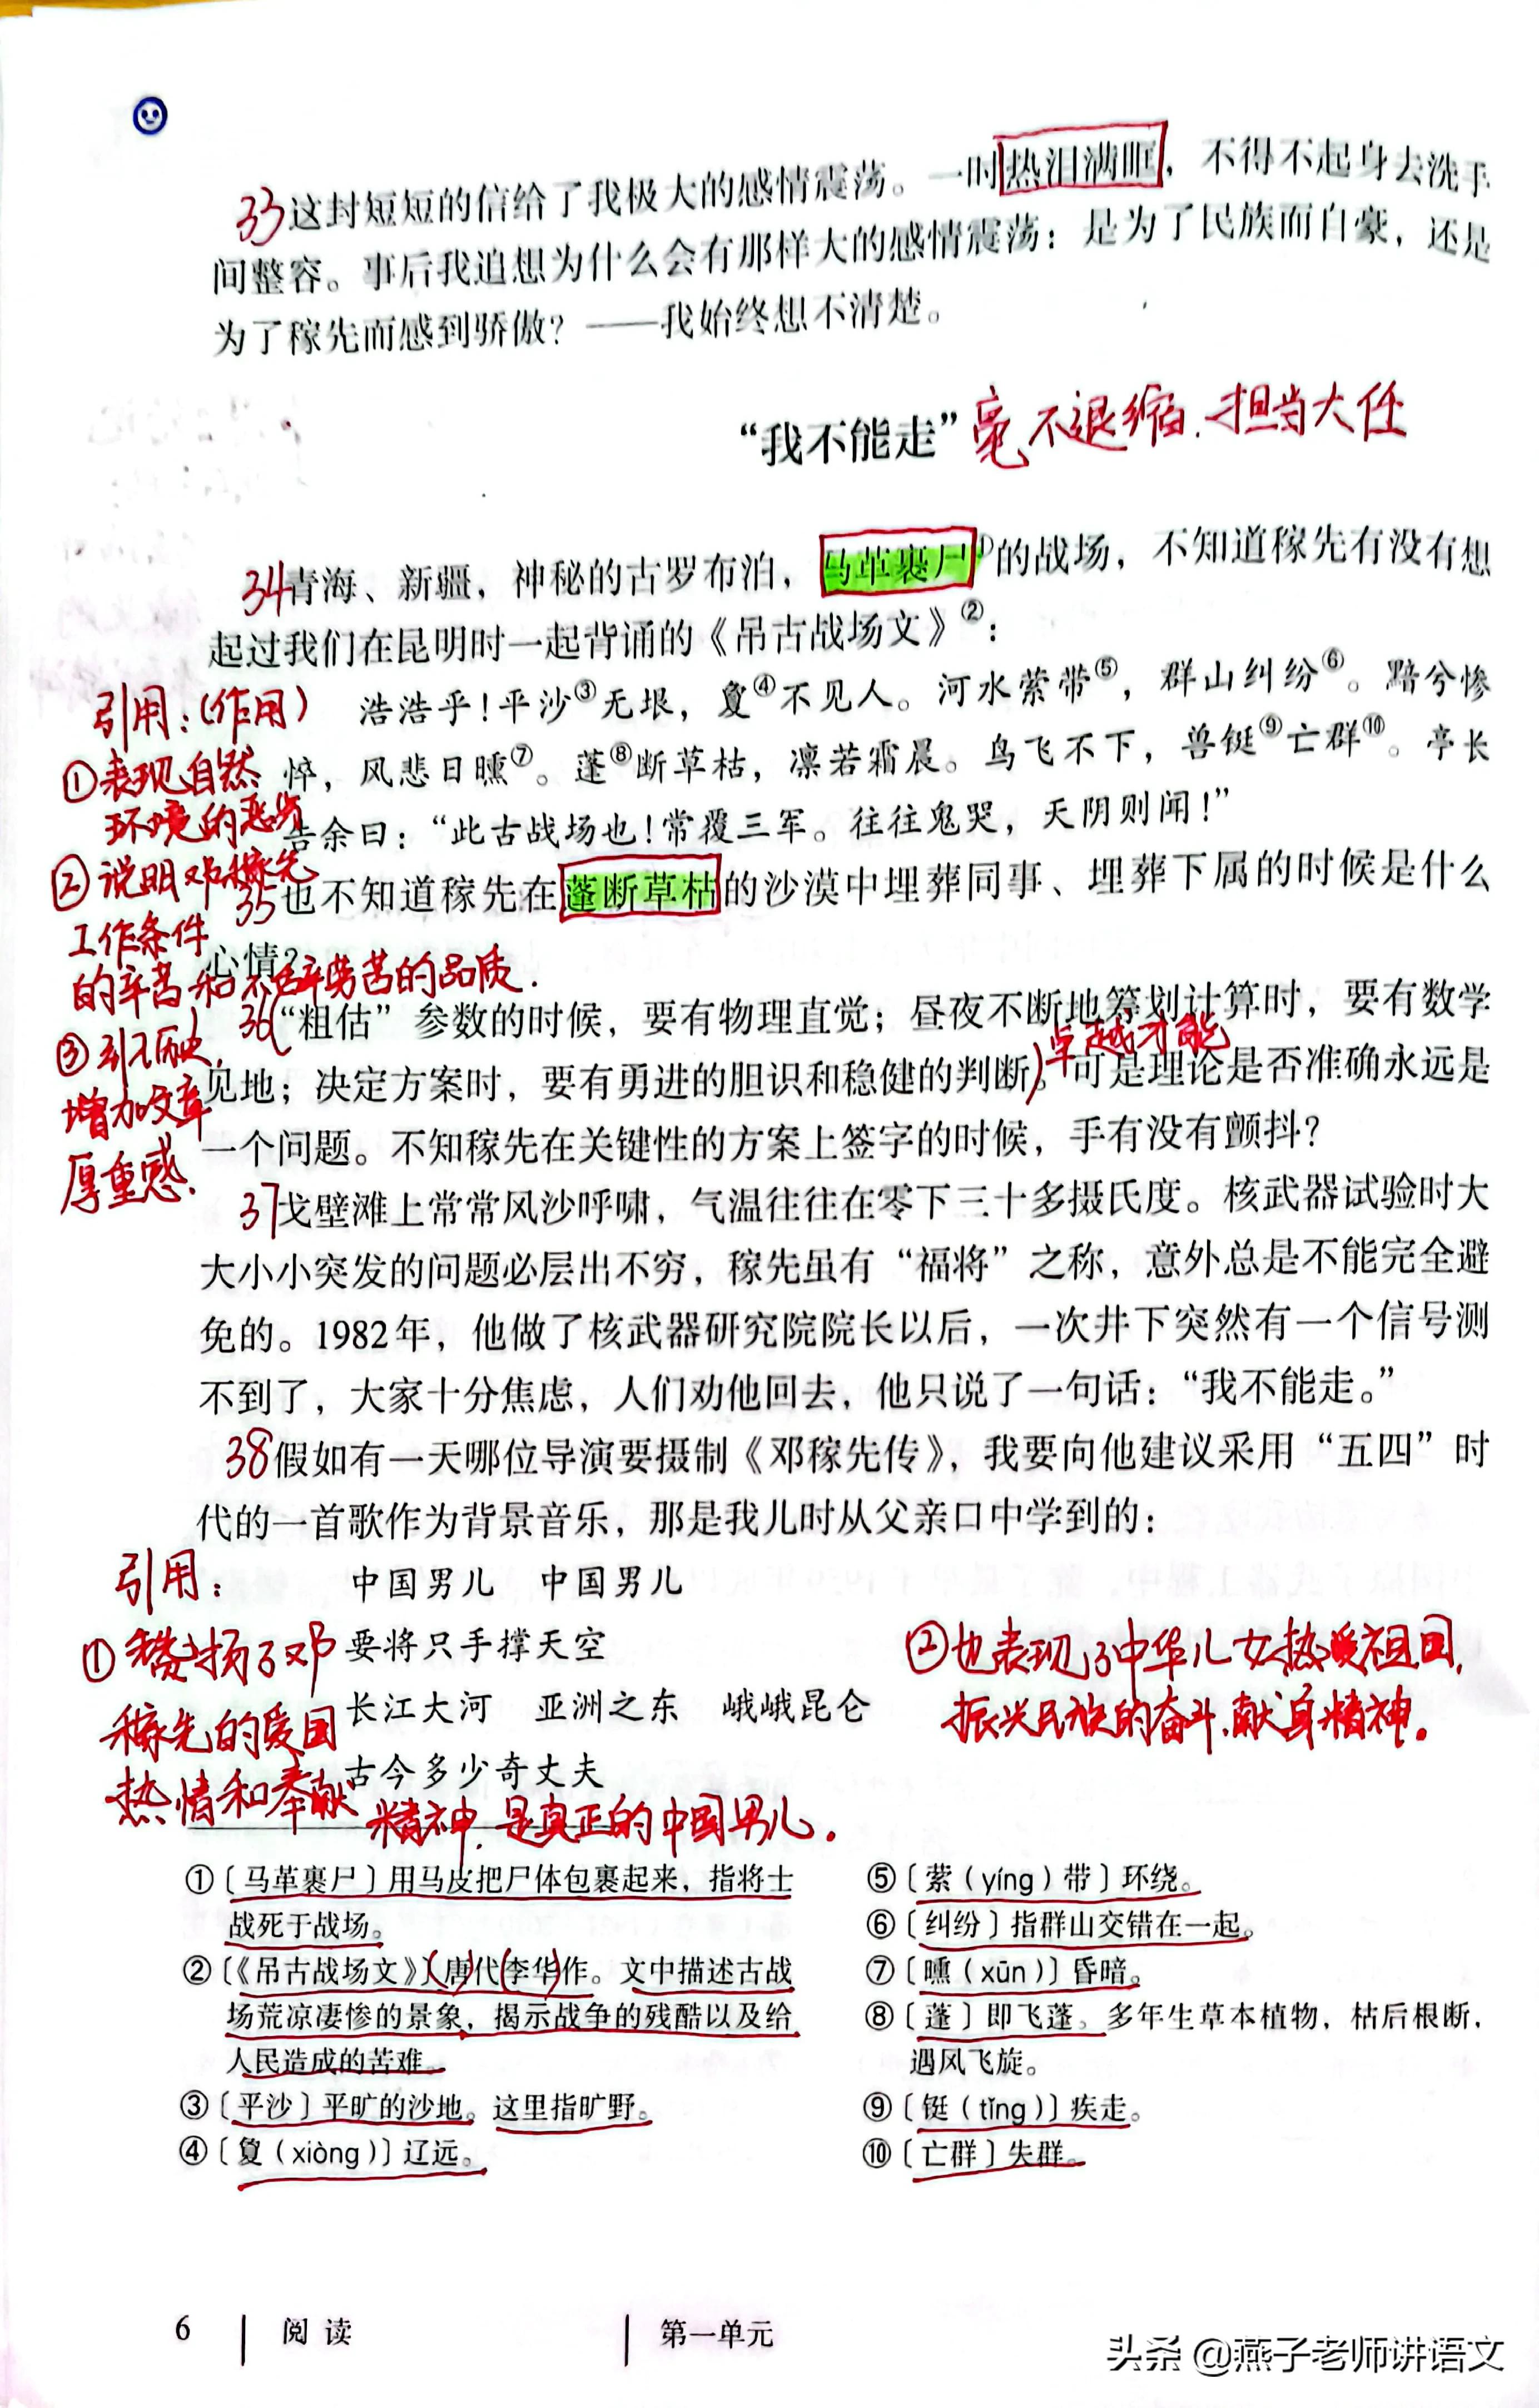 33这封短短的信给了我极大的感情震荡。一时热泪满眶，不得不起身去洗手
间整容。事后我追想为什么会有那样大的感情震荡：是为了民族而自豪，还是
为了稼先而感到骄傲？——我始终想不清楚。
“我不能走”毫不退缩.担当大任
34青海、新疆，神秘的古罗布泊，马革裹尸①的战场，不知道稼先有没有想
起过我们在昆明时一起背诵的《吊古战场文》②：
浩浩乎！平沙③无垠，夐④不见人。河水萦带⑤，群山纠纷⑥。黯兮惨
悴，风悲日曛⑦。蓬⑧断草枯，凛若霜晨。鸟飞不下，兽铤⑨亡群⑩。亭长
告余曰：“此古战场也！常覆三军。往往鬼哭，天阴则闻！”
35也不知道稼先在蓬断草枯的沙漠中埋葬同事、埋葬下属的时候是什么
心情？
36(“粗估”参数的时候，要有物理直觉；昼夜不断地筹划计算时，要有数学
见地；决定方案时，要有勇进的胆识和稳健的判断)。可是理论是否准确永远是
卓越才能
一个问题。不知稼先在关键性的方案上签字的时候，手有没有颤抖？
37戈壁滩上常常风沙呼啸，气温往往在零下三十多摄氏度。核武器试验时大
大小小突发的问题必层出不穷，稼先虽有“福将”之称，意外总是不能完全避
免的。1982年，他做了核武器研究院院长以后，一次井下突然有一个信号测
不到了，大家十分焦虑，人们劝他回去，他只说了一句话：“我不能走。”
38假如有一天哪位导演要摄制《邓稼先传》，我要向他建议采用“五四”时
代的一首歌作为背景音乐，那是我儿时从父亲口中学到的：
引用：(作用)
①表现自然
环境的恶劣
②说明邓稼先
工作条件
的辛苦和不辞劳苦的品质.
③引入历史,
增加文章
厚重感.
中国男儿 中国男儿
要将只手撑天空
长江大河 亚洲之东 峨峨昆仑
古今多少奇丈夫
引用：
①赞扬了邓
稼先的爱国
热情和奉献
精神,是真正的中国男儿.
②也表现了中华儿女热爱祖国,
振兴民族的奋斗,献身精神.
①〔马革裹尸〕用马皮把尸体包裹起来，指将士
战死于战场。
②〔《吊古战场文》〕(唐)代(李华)作。文中描述古战
场荒凉凄惨的景象，揭示战争的残酷以及给
人民造成的苦难。
③〔平沙〕平旷的沙地。这里指旷野。
④〔夐（xiòng）〕辽远。
⑤〔萦（yíng）带〕环绕。
⑥〔纠纷〕指群山交错在一起。
⑦〔曛（xūn）〕昏暗。
⑧〔蓬〕即飞蓬。多年生草本植物，枯后根断，
遇风飞旋。
⑨〔铤（tǐng）〕疾走。
⑩〔亡群〕失群。
6 阅读 第一单元
头条 @燕子老师讲语文